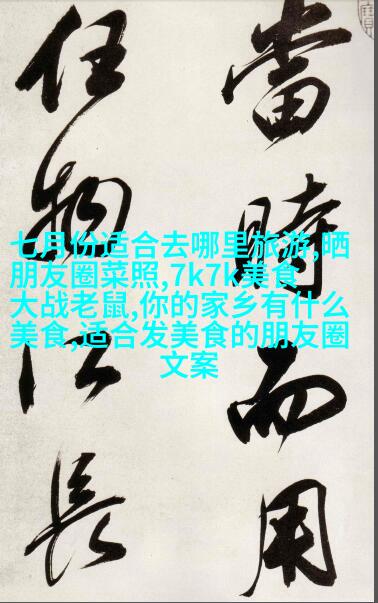 當時而用
任物長
七月份适合去哪里旅游,晒
朋友圈菜照,7k7k美食
大战老鼠,你的家乡有什么
美食,适合发美食的朋友圈
文案